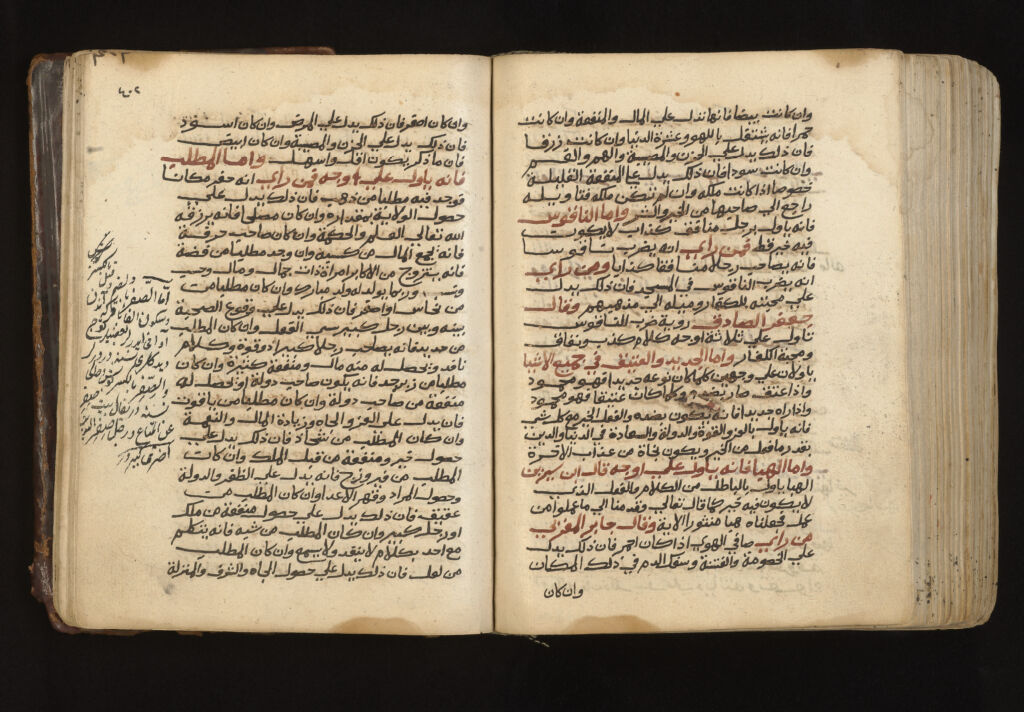 وان كانت بيضا فانها تدل علي المال والمنفعة وان كانت
حمرا فانه يشتغل باللهو وعشرة الدنيا وان كانت زرقا
فان ذلك يدل علي الحزن والمصيبة والهم والغم
وان كانت سودا فان ذلك يدل علي المنفعة القليلة
خصوصا اذا كانت ملكه وان لم تكن ملكه فتاويله
راجع الي صاحبها من الخير والشر واما الناقوس
فانه ياول برجل منافق كذاب لا يكون
فيه خير قط فمن راي انه يضرب ناقوسا
فانه يصاحب رجلا منافقا كذابا ومن راي
انه يضرب الناقوس في المسجد فان ذلك يدل
علي محبته للكفار وميله الي مذهبهم وقال
جعفر الصادق روية ضرب الناقوس
تاول علي ثلاثة اوجه كلام كذب ونفاق
ومحبة الكفار واما الحديد والعتيق في جميع الاشيا
ياولان علي وجهين كلما كان نوعه جديدا فهو محمود
واذا عتق صار بضده وكلما كان عتيقا فهو محمود
واذا راه جديدا فانه يكون بضده والفعل الخير مع كل شي
فانه ياول بالعز والقوة والدولة والسعادة في الدنيا والدين
بقدر ما فعل من الخير ويكون نجاة من عذاب الاخرة
واما الهبا فانه ياول علي اوجه قال ابن سيرين
الهبا ياول بالباطل من الكلام والفعل الذي
لا يكون فيه خير كما قال تعالي وقدمنا الي ما عملوا من
عمل فجعلناه هبا منثورا الاية وقال جابر المغربي
من راي صافي الهوي اذا كان احمر فان ذلك يدل
علي الخصومة والفتنة وسفك الدم في ذلك المكان
وان كان
٤٠٢
وان كان اصفر فان ذلك يدل علي المرض وان كان اسود
فان ذلك يدل علي الحزن والمصيبة وان كان ابيض
فان ما ذكر يكون اقل واسهل واما المطلب
فانه ياول علي اوجه فمن راي انه حفر مكانا
فوجد فيه مطلبا من ذهب فان ذلك يدل علي
حصول الولاية بمقداره وان كان مصلي فانه يرزقه
الله تعالي العلم والحكمة وان كان صاحب حرفة
فانه يجمع المال من كسبه وان وجد مطلبا من فضة
فانه يتزوج من الاكابر امراة ذات جمال ومال وحب
وربما يولد له ولد مبارك وان كان مطلبا من
من نحاس او اصفر فان ذلك يدل علي وقوع الصحبة
بينه وبين رجل كبير سي الفعل وان كان المطلب
من حديد فانه يصاحب رجلا كبيرا ذو قوة وكلام
نافد وتحصل له منه مال ومنفعة كثيرة وان كان
مطلبا من زبرجد فانه يكون صاحب دولة او تحصل له
منفعة من صاحب دولة وان كان مطلبا من ياقوت
فان يدل علي العز والجاه وزيادة المال والنعمة
وان كان المطلب من فان ذلك يدل علي
حصول خير ومنفعة من قبل الملك وان كان
المطلب من فيروزج فانه يدل علي الظفر والدولة
وحصول المراد وقهر الاعدا وان كان المطلب من
عقيق فان ذلك يدل علي حصول منفعة من ملك
او رجل كبير وان كان المطلب من شبه فانه يتكلم
مع احد بكلام لا ينفد ولا يسمع وان كان المطلب
من لعل فان ذلك يدل علي حصول الجاه والشرف والمنزلة